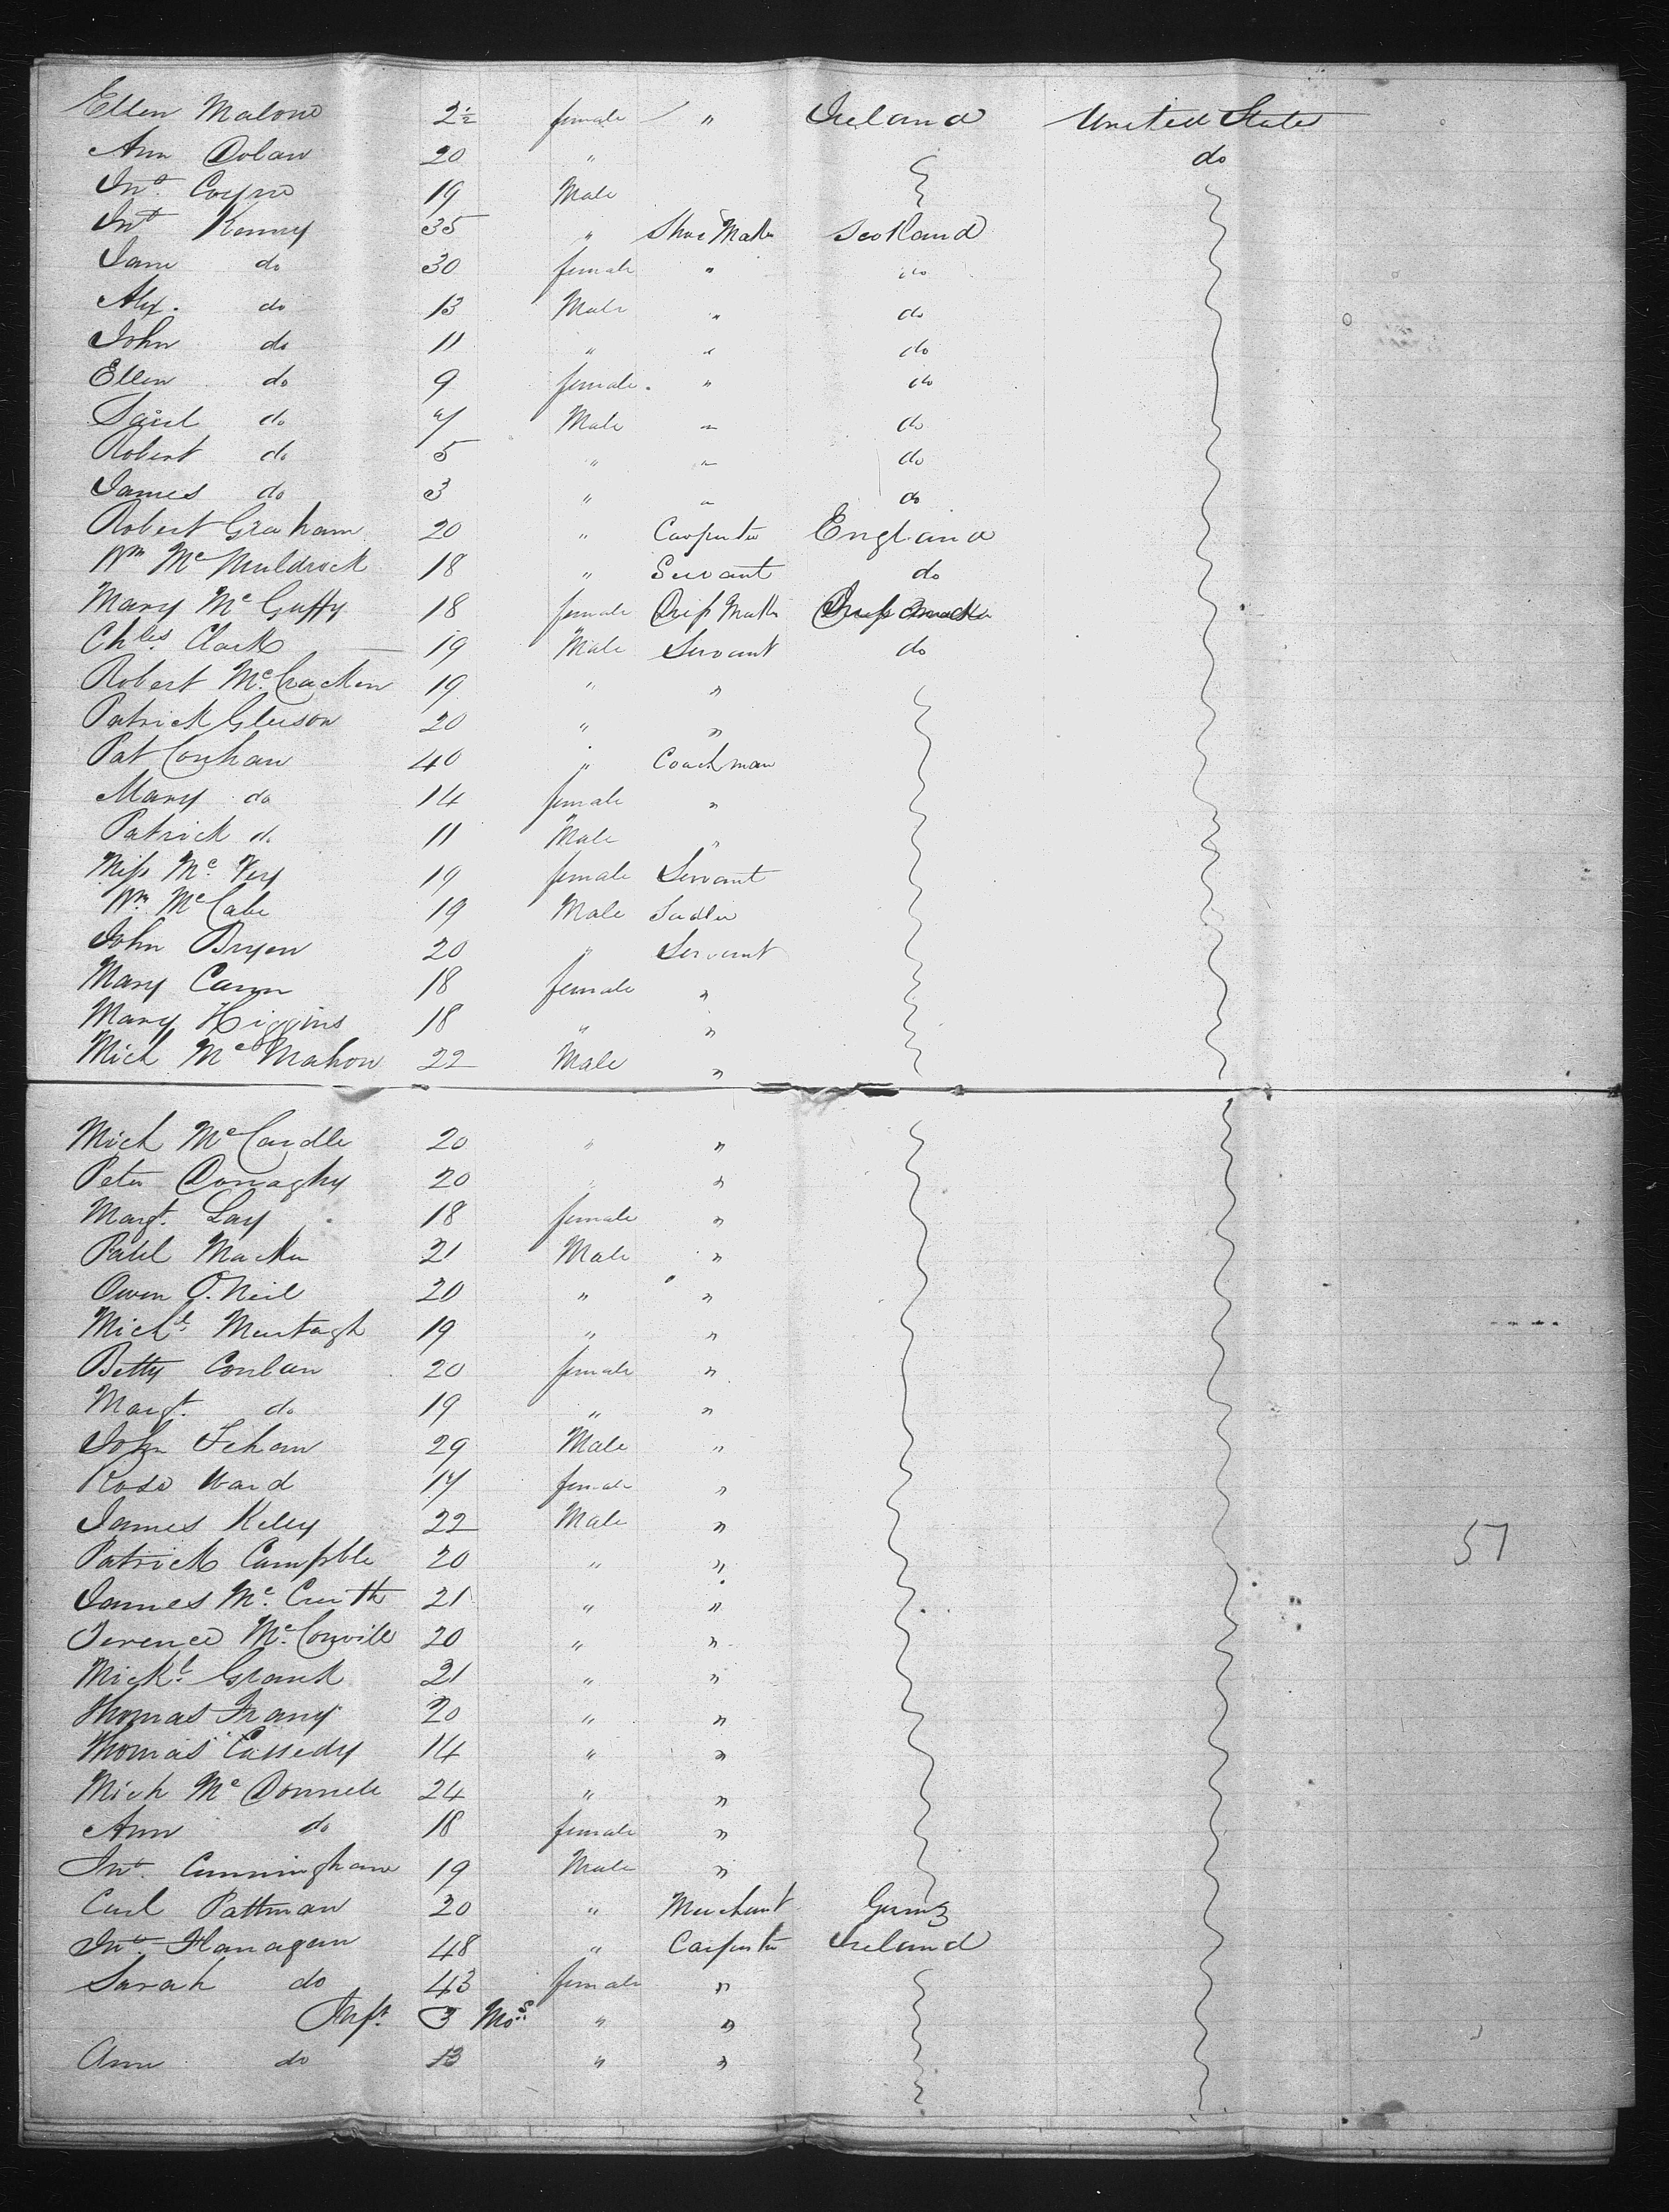 Ellen Malone 2½ female " Ireland United States
Ann Dolan 20 " do
Jno. Coyne 19 Male
Jno. Kenny 35 " Shoe Maker Scotland
Jane do 30 female " do
Alex. do 13 Male " do
John do 11 " " do
Ellen do 9 female " do
Saml do 7 Male " do
Robert do 5 " " do
James do 3 " " do
Robert Graham 20 " Carpenter England
Wm McMuldrock 18 " Servant do
Mary McGuffy 18 female Dress Maker Dress Maker
Chles. Clark 19 Male Servant do
Robert McCracken 19 " "
Patrick Gleeson 20 " "
Pat 40 " Coachman
Mary do 14 female "
Patrick do 11 Male "
Miss Mc Vey 19 female Servant
Wm McCabe 19 Male Sadler
John Bryen 20 " Servant
Mary Cann 18 female "
Mary Higgins 18 " "
Mich McMahon 22 Male "
Mich McCardle 20 " "
Peter Donaghy 20 " "
Margt. Lay 18 female "
Patk 21 Male "
Owen O.Neil 20 " "
Michl. Murtagh 19 " "
Betty Conlan 20 female "
Margt. do 19 " "
John 29 Male "
Rose Ward 17 female "
James Kelly 22 Male "
Patrick Campble 20 " "
James Mc 21 " "
Terence McConvill 20 " "
Mickl. Grant 21 " "
Thomas 20 " "
Thomas Cassedy 14 " "
Mich McDonnell 24 " "
Ann do 18 female "
Jno. Cunningham 19 Male "
Carl Pattman 20 " Merchant Gümz
Jno. Flanagan 48 " Carpenter Ireland
Sarah do 43 female "
Inft. 3 Mos. " "
Ann do 13 " "
57